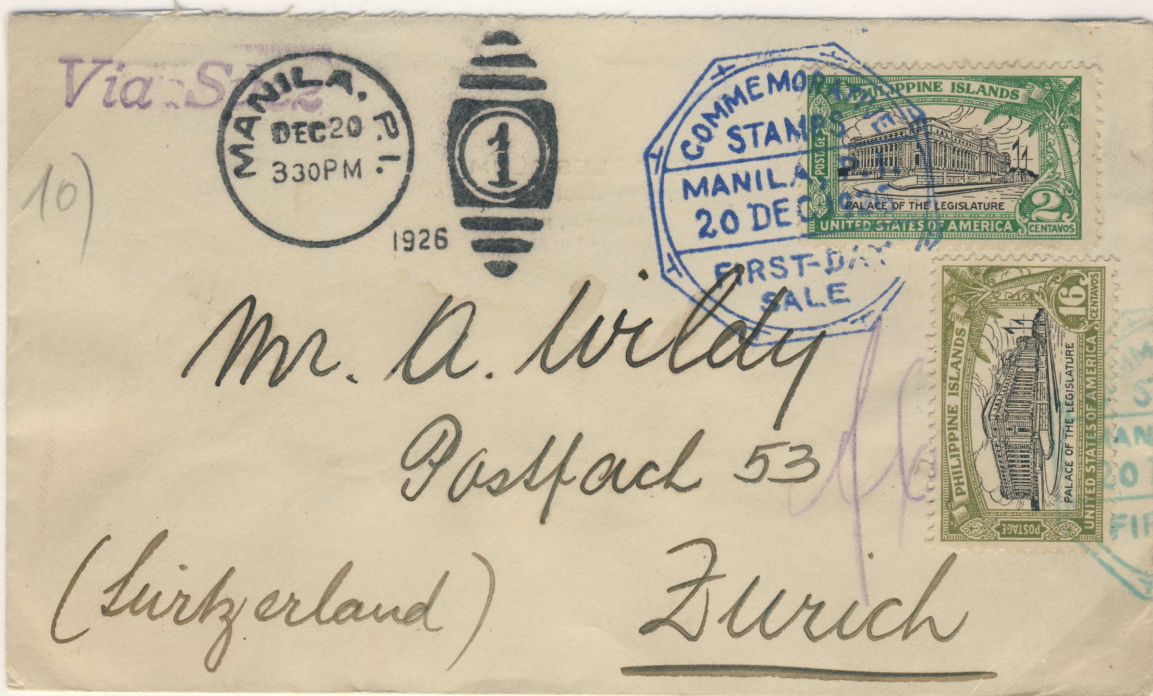 Via Suez
MANILA, P.I.
DEC 20
330 PM
1926
1
10)
COMMEMORATIVE
STAMPS
MANILA, P.I.
20 DEC 1926
FIRST-DAY
SALE
PHILIPPINE ISLANDS
POSTAGE
PALACE OF THE LEGISLATURE
2
CENTAVOS
UNITED STATES OF AMERICA
PHILIPPINE ISLANDS
16
CENTAVOS
PALACE OF THE LEGISLATURE
UNITED STATES OF AMERICA
POSTAGE
Mr. A. Wildy
Postfach 53
(Suitzerland)
Zurich
AN
20
FIR